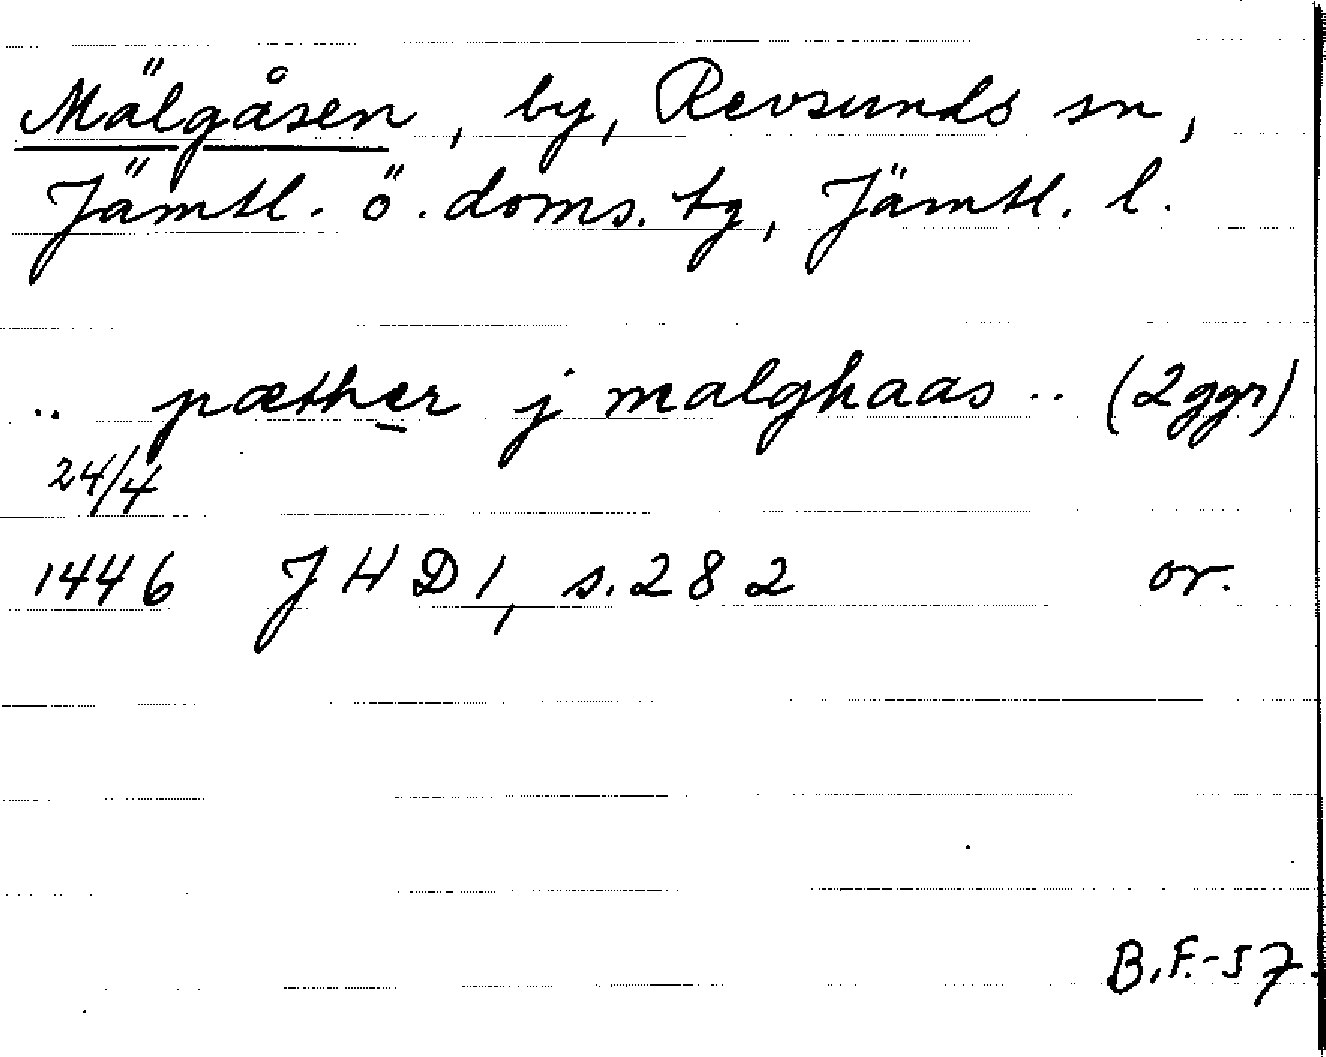 Mälgåsen, by, Revsunds sn,
Jämtl. ö. doms. tg, Jämtl. l.
.. pæther j malghaas .. (2ggr)
24/4
1446 JHD 1, s. 282 or.
B.F.-57.